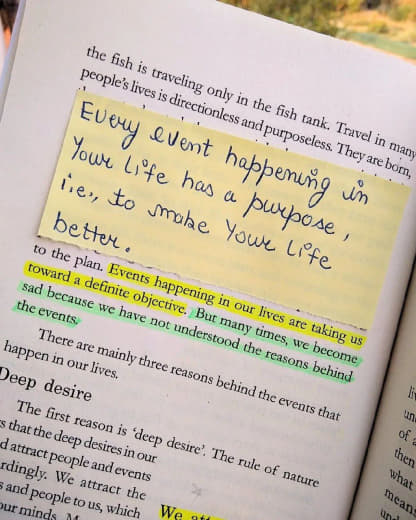 the fish is traveling only in the fish tank. Travel in many
people's lives is directionless and purposeless. They are born,
Every event happening in
Your life has a purpose,
i.e., to make Your life
better.
to the plan. Events happening in our lives are taking us
toward a definite objective. But many times, we become
sad because we have not understood the reasons behind
the events.
There are mainly three reasons behind the events that
happen in our lives.
Deep desire
The first reason is 'deep desire'. The rule of nature
s that the deep desires in our
d attract people and events
rdingly. We attract the
s and people to us, which
our minds.
We att
of a
then
what
mean